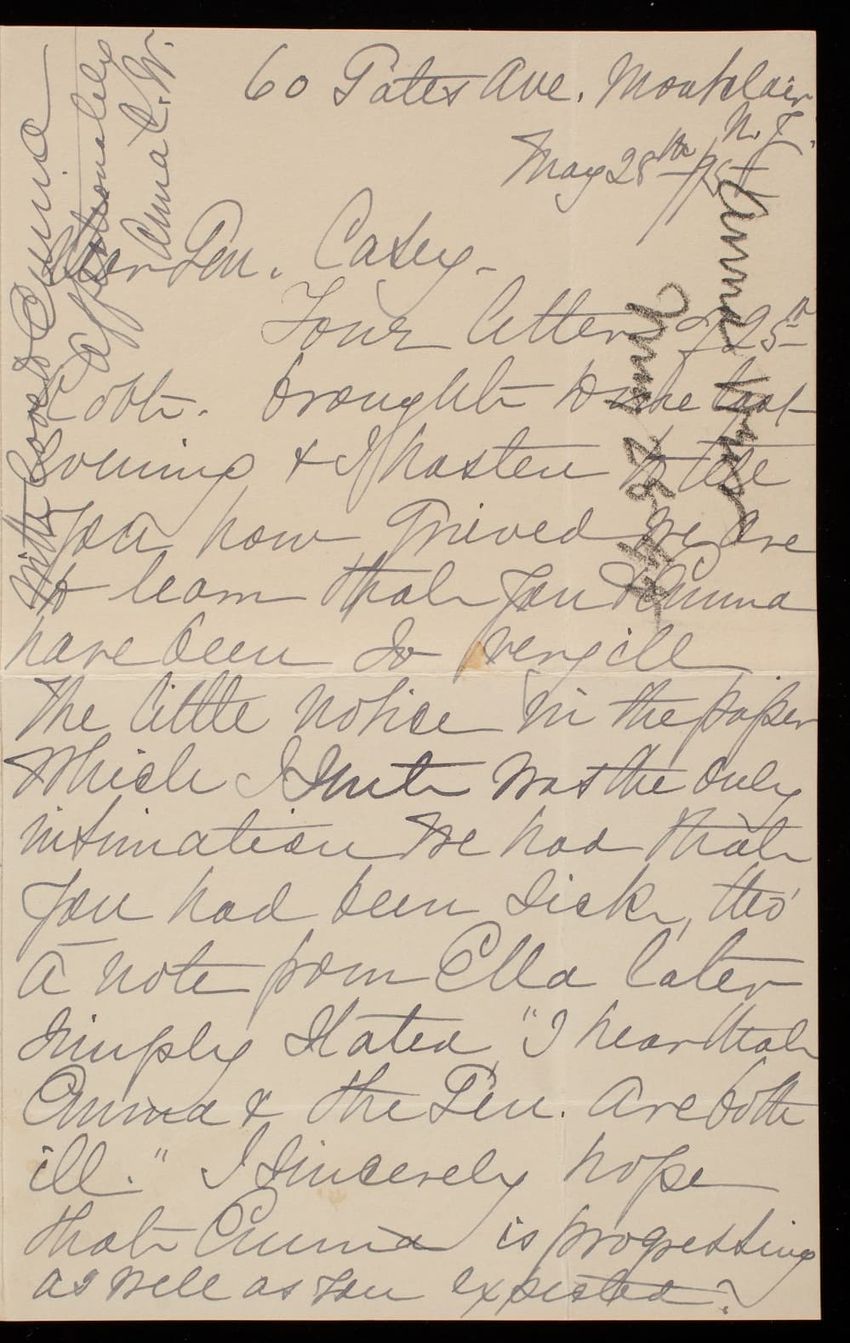 60 Gates Ave. Montclair
N. J.
May 28th /95
Dear Gen. Casey.
Your letter of 25th
to Robt. brought home last
evening & I hasten to tell
you how grieved we are
to learn that you & Emma
have been so very ill
The little notice in the paper
which I sent was the only
intimation we had that
you had been sick, tho'
a note from Ella later
simply stated "I hear that
Emma & the Gen. are both
ill." I sincerely hope
that Emma is progressing
as well as you expected.
With love to Emma
affectionately
Anna C. W.
Anna
May 28-95